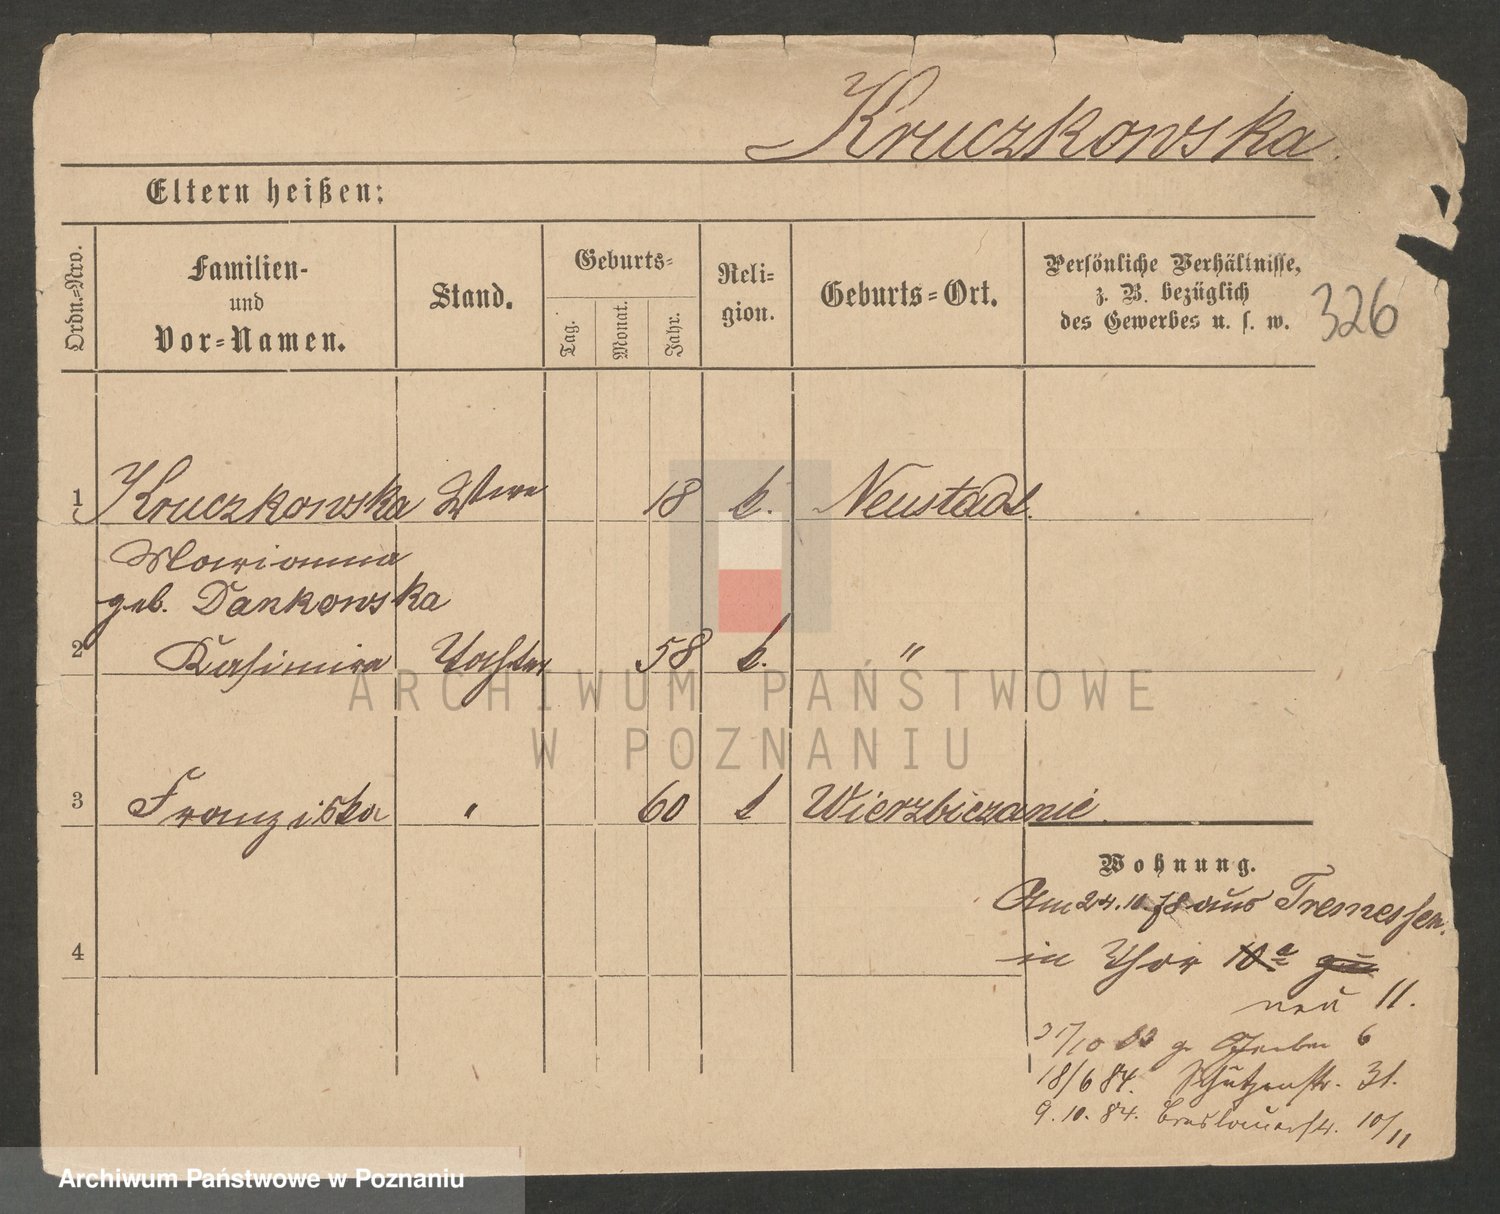 Kruczkowska
Eltern heißen:
Ordn.-Nro.
Familien-
und
Vor-Namen.
Stand.
Geburts-
Tag.
Monat.
Jahr.
Reli-
gion.
Geburts-Ort.
Persönliche Verhältnisse,
z. B. bezüglich
des Gewerbes u. s. w.
326
1 Kruczkowska Wwe 18 k. Neustadt.
Marianna
geb. Dankowska
2 Kasimira Tochter 58 k. "
3 Franziska " 60 k Wierzbiczanie.
Wohnung.
Am 24.10.78 aus Tremessen.
in Thor
neu 11.
4
gr Gerber 6
18/6 84. Schützenstr. 31.
9. 10. 84. Breslauerstr. 10/11
ARCHIWUM PAŃSTWOWE
W POZNANIU
Archiwum Państwowe w Poznaniu